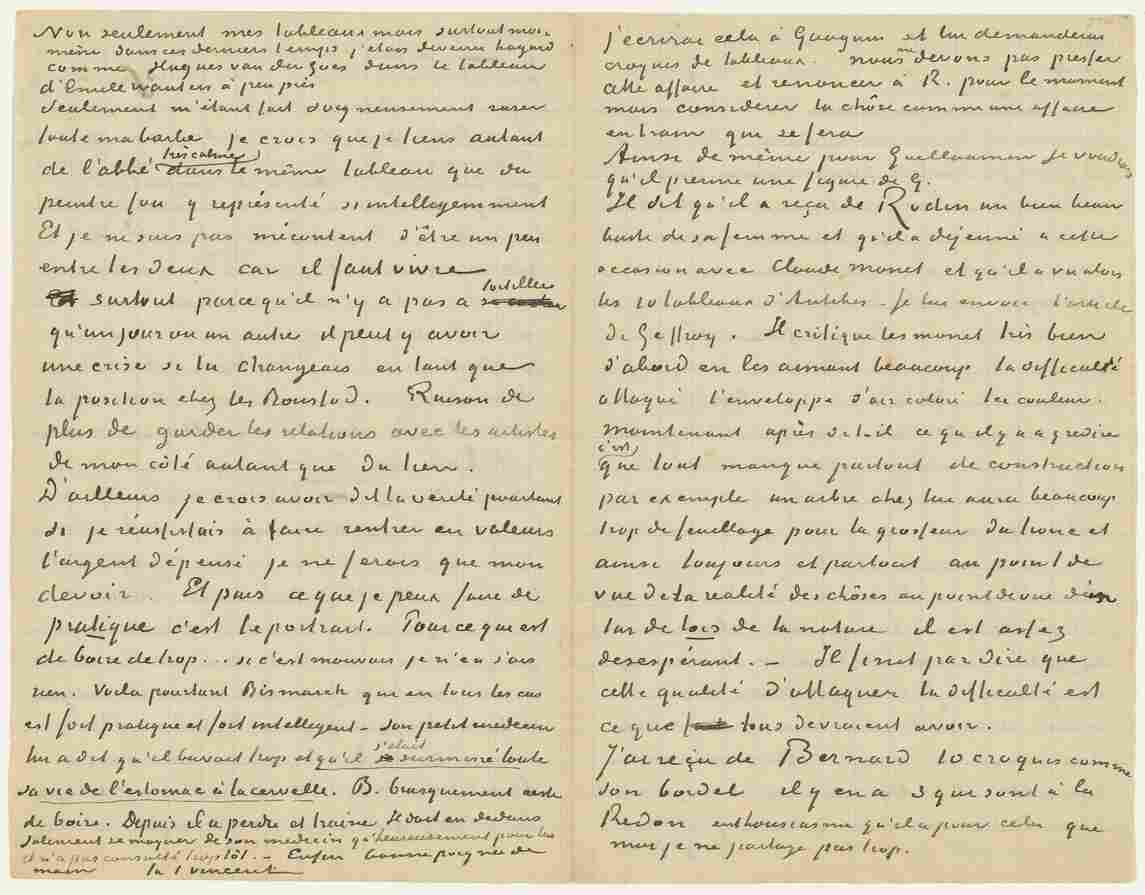 Non seulement mes tableaux mais surtout moi-
même dans ces derniers temps j'etais devenu hagard
comme Hugues van der Goes dans le tableau
d'Emile Wauters à peu près
Seulement m'étant fait soigneusement raser
toute ma barbe je crois que je tiens autant
de l'abbé très calme dans le même tableau que du
peintre fou y représenté si intelligemment
Et je ne suis pas mécontent d'être un peu
entre les deux car il faut vivre
surtout parce qu'il n'y a pas a tortiller
qu'un jour ou un autre il peut y avoir
une crise si tu changeais en tant que
la position chez les Boussod. Raison de
plus de garder les relations avec les artistes
de mon côté autant que du tien.
D'ailleurs je crois avoir dit la vérité pourtant
si je réussissais à faire rentrer en valeurs
l'argent dépensé je ne ferais que mon
devoir. Et puis ce que je peux faire de
pratique c'est le portrait. Pour ce qui est
de boire de trop... si c'est mauvais je n'en sais
rien. Voila pourtant Bismarck qui en tous les cas
est fort pratique et fort intelligent – son petit medecin
lui a dit qu'il buvait trop et qu'il s'etait surmené toute
sa vie de l'estomac à la cervelle. B. brusquement cesse
de boire. Depuis il a perdu et traine Il doit en dedans
joliment se moquer de son medecin qu'heureusement pour lui
il n'a pas consulté trop tôt. – Enfin bonne poignée de
main t. à t. Vincent
j'ecrirai cela à Gauguin et lui demanderai
croquis de tableaux. nous ne devons pas presser
cette affaire et renoncer à R. pour le moment
mais considerer la chôse comme une affaire
en train qui se fera
Ainsi de même pour Guillaumin Je voudrais
qu'il prenne une figure de G.
Il dit qu'il a reçu de Rodin un bien beau
buste de sa femme et qu'il a déjeuné a cette
occasion avec Claude Monet et qu'il a vu alors
les 10 tableaux d'Antibes. Je lui envoie l'article
de Geffroy. Il critique les Monet très bien
d'abord en les aimant beaucoup la difficulté
attaqué l'enveloppe d'air coloré la couleur.
Maintenant après dit-il ce qu'il y a a y redire
c'est que tout manque partout de construction
par exemple un arbre chez lui aura beaucoup
trop de feuillage pour la grosseur du tronc et
ainsi toujours et partout au point de
vue de la realité des chôses au point de vue d'un
tas de lois de la nature il est assez
desespérant. – Il finit par dire que
cette qualité d'attaquer la difficulté est
ce que tous devraient avoir.
J'ai reçu de Bernard 10 croquis comme
son bordel il y en a 3 qui sont à la
Redon enthousiasme qu'il a pour cela que
moi je ne partage pas trop.